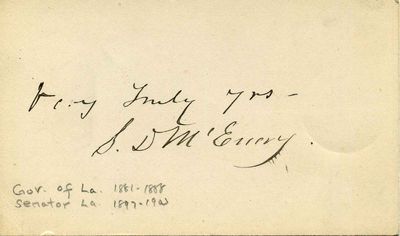 Very Truly yrs -
S. D McEnery.
Gov. of La. 1881-1888
Senator La. 1897-1910